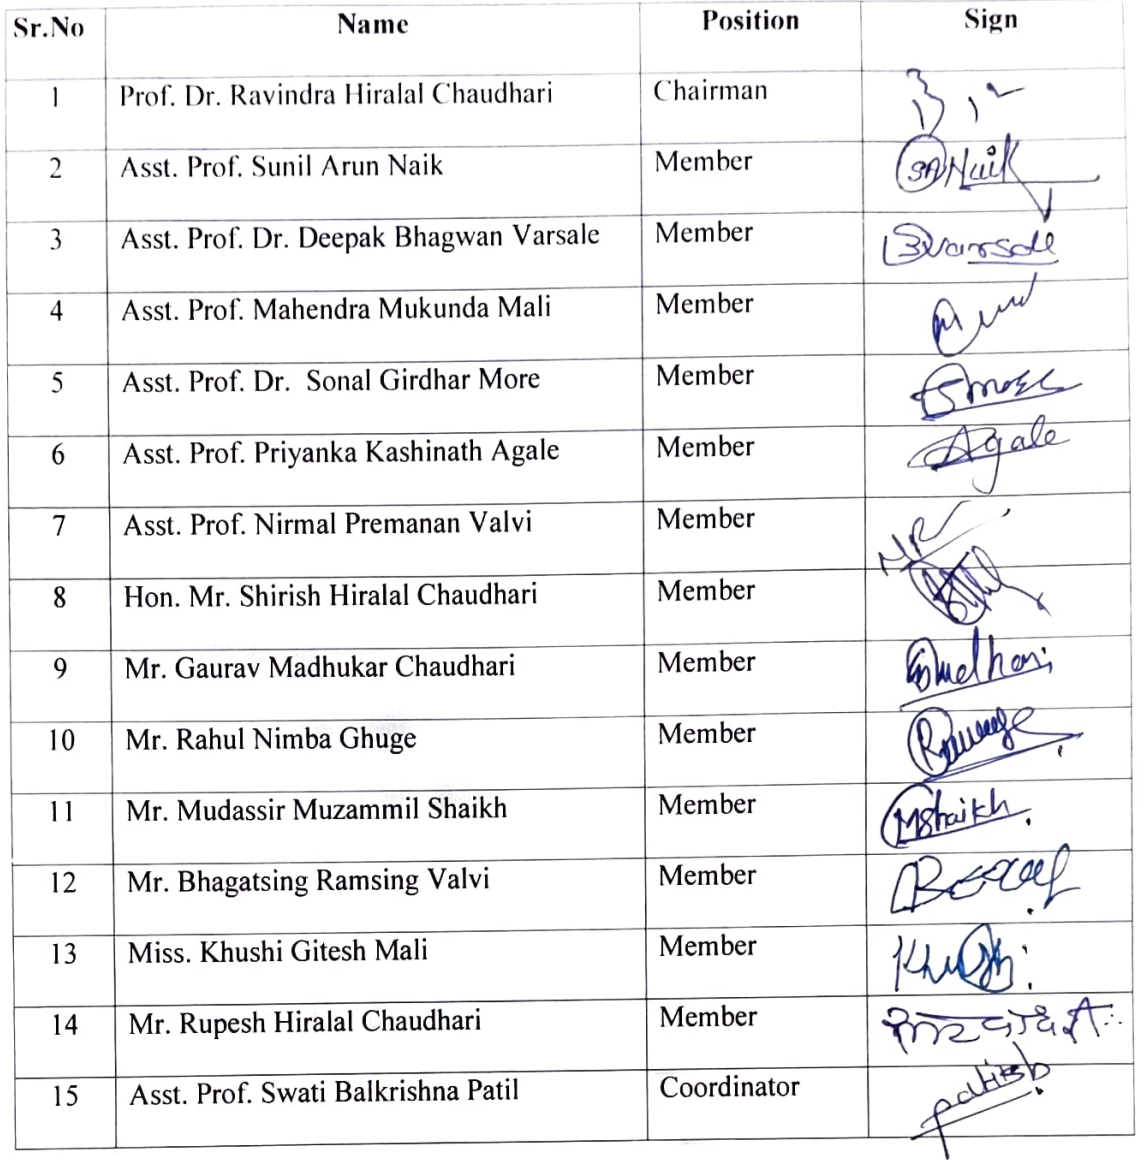 Sr.No Name Position Sign
1 Prof. Dr. Ravindra Hiralal Chaudhari Chairman
2 Asst. Prof. Sunil Arun Naik Member SANaik
3 Asst. Prof. Dr. Deepak Bhagwan Varsale Member Varsale
4 Asst. Prof. Mahendra Mukunda Mali Member
5 Asst. Prof. Dr. Sonal Girdhar More Member
6 Asst. Prof. Priyanka Kashinath Agale Member Agale
7 Asst. Prof. Nirmal Premanan Valvi Member
8 Hon. Mr. Shirish Hiralal Chaudhari Member
9 Mr. Gaurav Madhukar Chaudhari Member
10 Mr. Rahul Nimba Ghuge Member
11 Mr. Mudassir Muzammil Shaikh Member MShaikh
12 Mr. Bhagatsing Ramsing Valvi Member
13 Miss. Khushi Gitesh Mali Member Khushi
14 Mr. Rupesh Hiralal Chaudhari Member
15 Asst. Prof. Swati Balkrishna Patil Coordinator